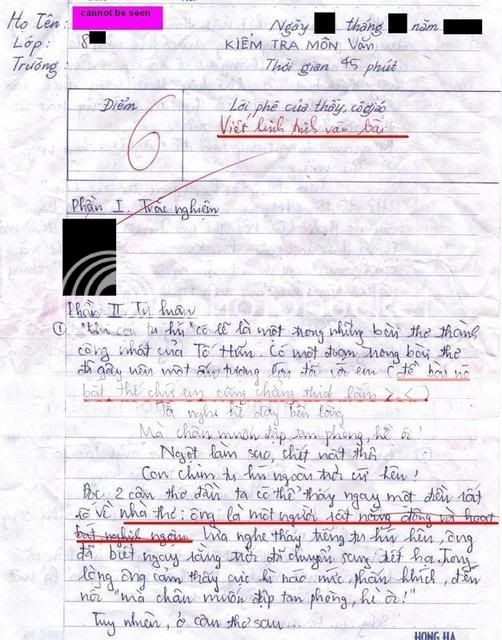 Họ Tên: cannot be seen
Ngày tháng năm
Lớp: 8
KIỂM TRA MÔN Văn
Trường:
Thời gian 45 phút
Điểm
Lời phê của thầy, cô giáo
6
Viết linh tinh vào bài
Phần I. Trắc nghiệm
Phần II. Tự luận
① "Khi con tu hú" có lẽ là một trong những bài thơ thành
công nhất của Tố Hữu. Có một đoạn trong bài thơ
đã gây nên một ấn tượng lớn đối với em (đề bài nó
bắt thế chứ em cũng chẳng thích lắm >.<)
Ta nghe hè dậy bên lòng
Mà chân muốn đạp tan phòng, hè ôi!
Ngột làm sao, chết uất thôi
Con chim tu hú ngoài trời cứ kêu!
Đọc 2 câu thơ đầu ta có thể thấy ngay một điều rất
rõ về nhà thơ: ông là một người rất năng động và hoạt
bát nghịch ngợm. Vừa nghe thấy tiếng tu hú kêu, ông
đã biết ngay rằng trời đã chuyển sang tiết hạ. Trong
lòng ông cảm thấy cực kì náo nức phấn khích, đến
nỗi "mà chân muốn đạp tan phòng, hè ôi!"
Tuy nhiên, ở câu thơ sau...
HONG HA